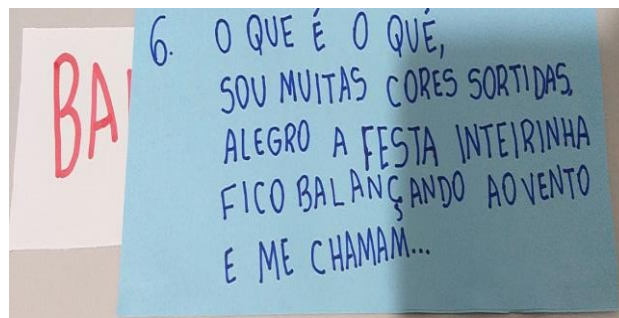 BA
6. O QUE É O QUÊ,
SOU MUITAS CORES SORTIDAS,
ALEGRO A FESTA INTEIRINHA
FICO BALANÇANDO AO VENTO
E ME CHAMAM...